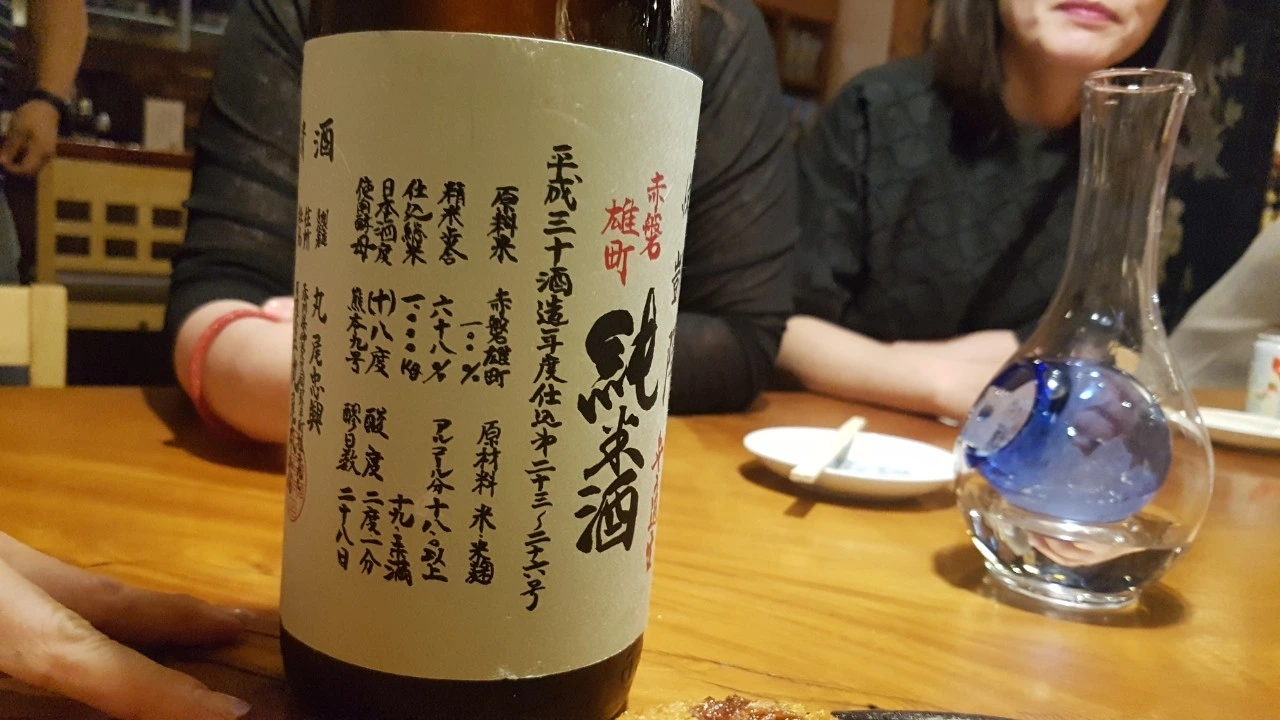 赤磐
雄町
純米酒
平成三十酒造年度仕込第二十三～二十六号
原料米 赤磐雄町
一〇〇%
原材料 米・米麹
精米歩合 六十八%
アルコール分十八・〇以上
十九・〇未満
仕込総米 一〇〇〇kg
日本酒度 (十)八度
酸度 二度一分
使用酵母 熊本九号
醪日数 二十八日
酒
丸尾忠興